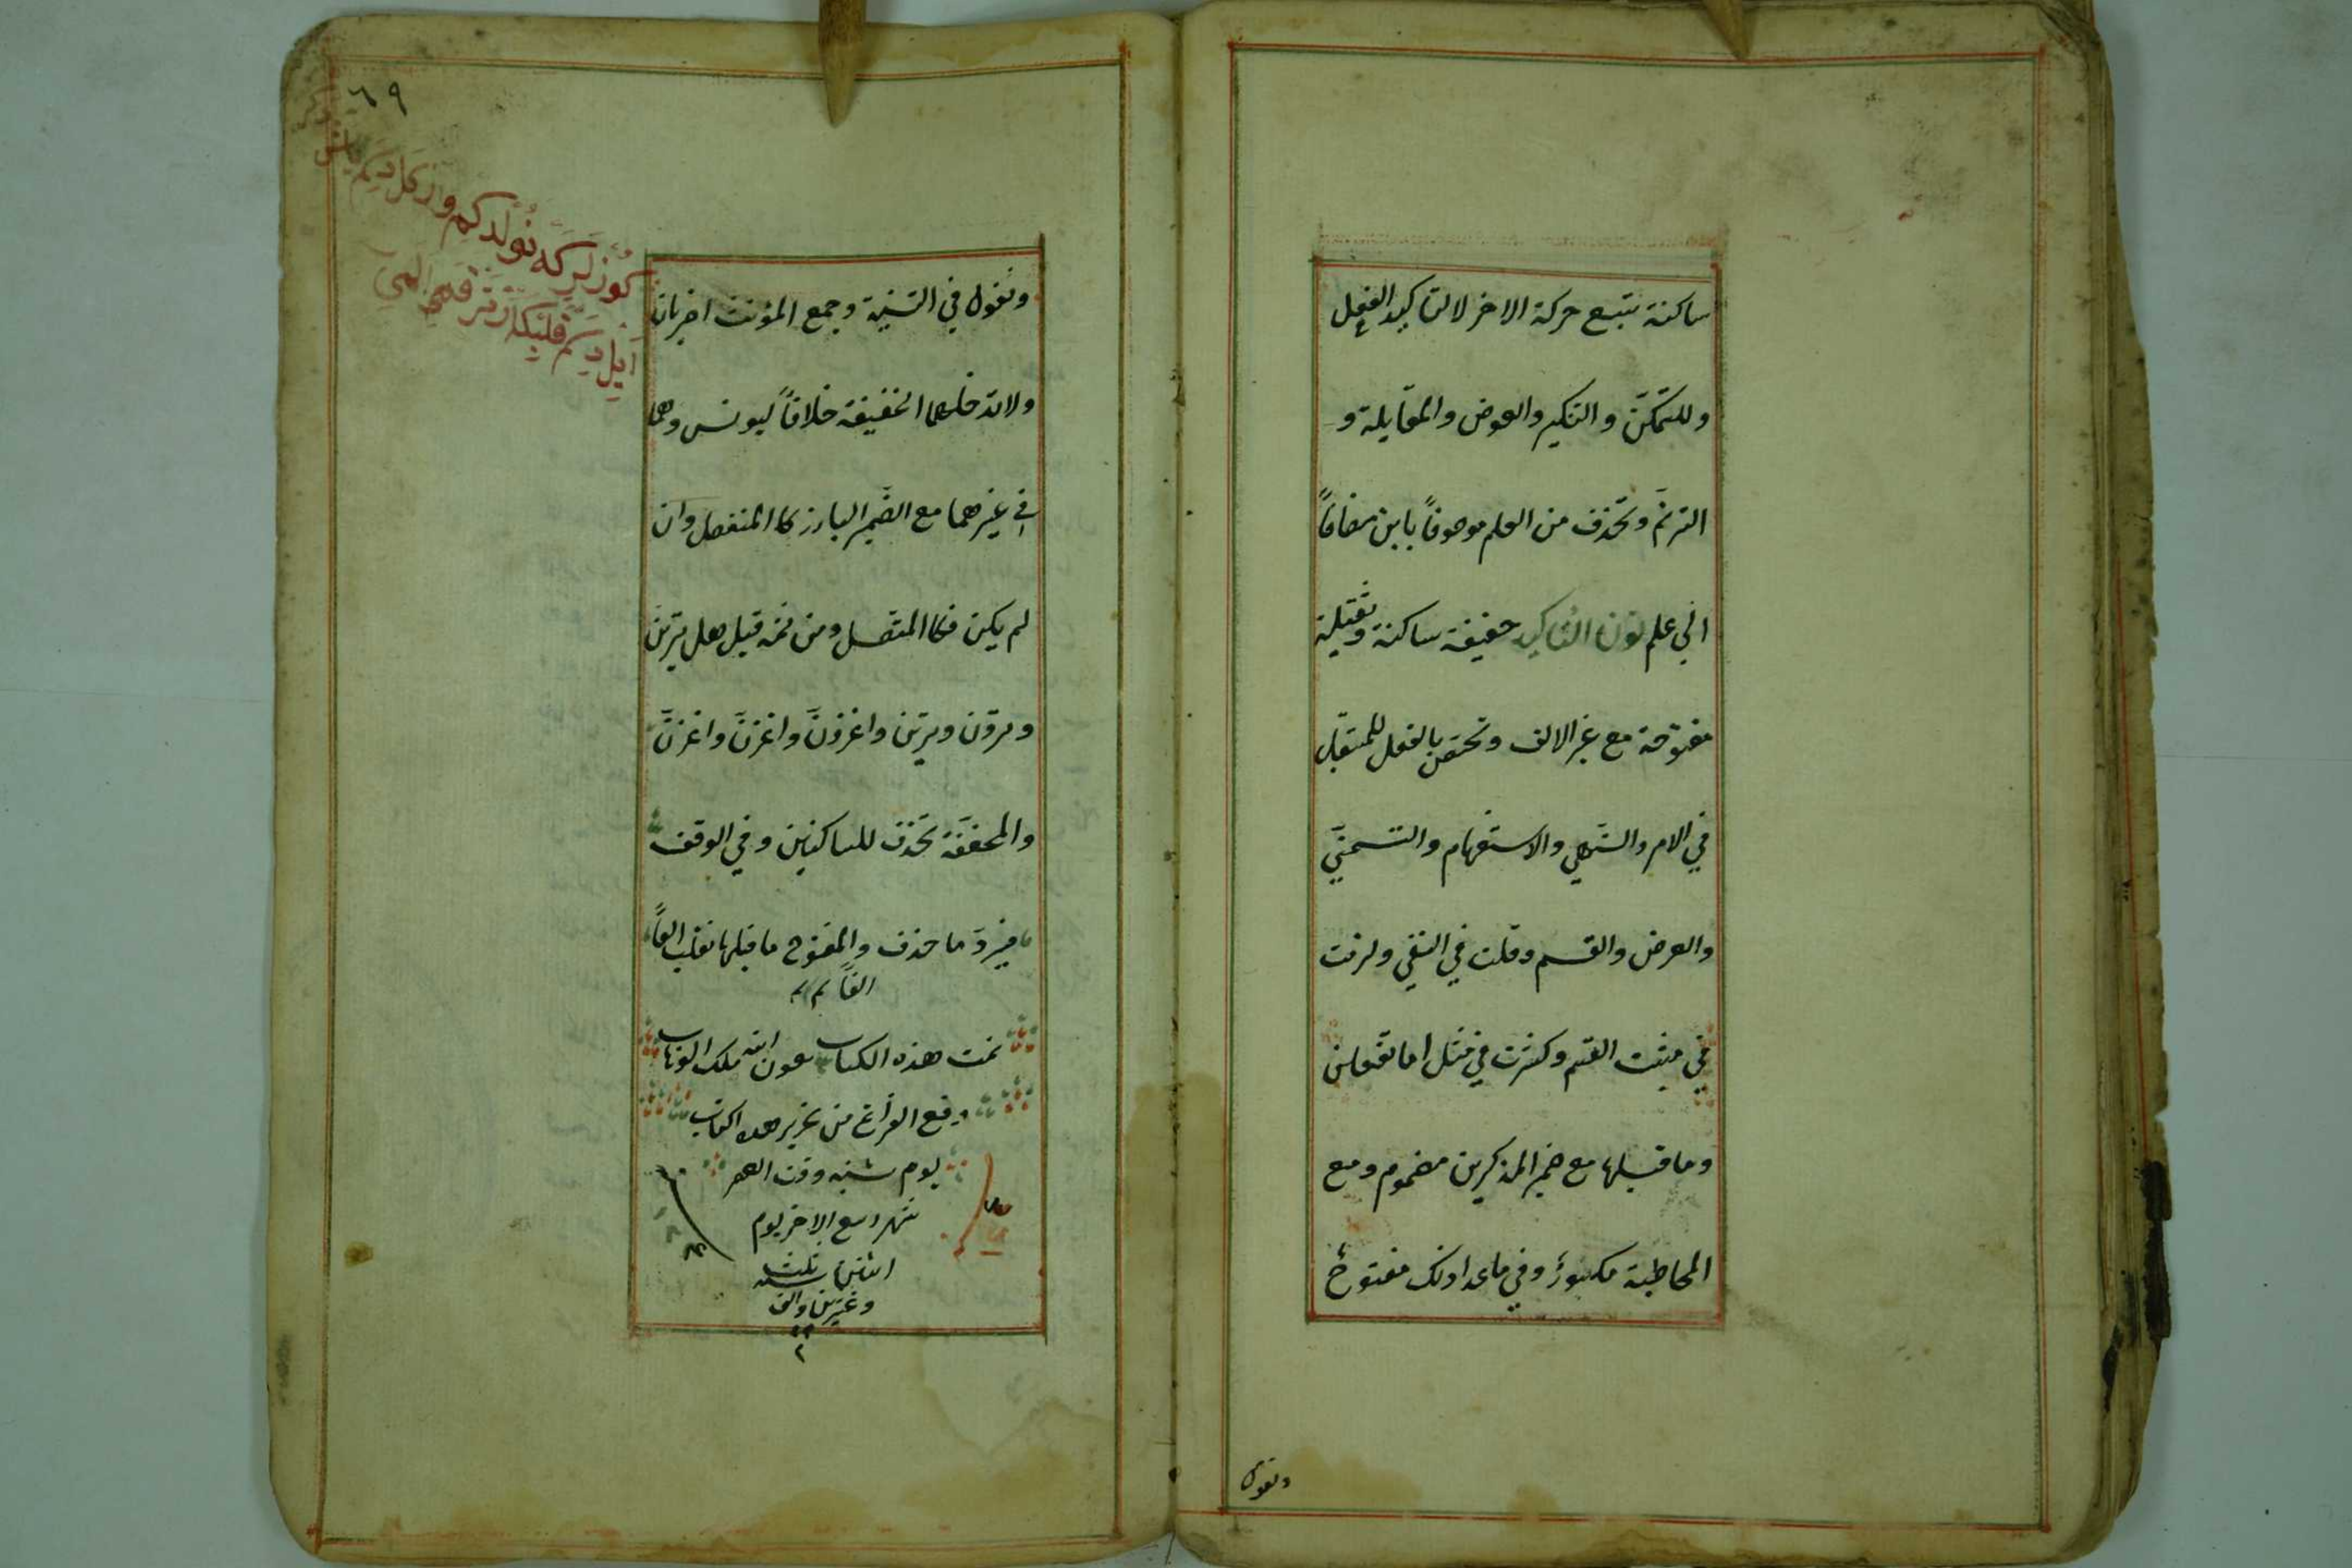 ساكنة يتبع حركة الاخر لا لتاكيد الفعل
وللتمكّن والتنكير والعوض والمقابلة و
الترنّم وتحذف من العلم موصوفاً بابن مضافاً
الى علم نون التاكيد خفيفة ساكنة وثقيلة
مفتوحة مع غير الالف وتختص بالفعل المستقبل
في الامر والنّهى والاستفهام والتمنّي
والعرض والقسم وقلت في النفي ولزمت
في مثبت القسم وكثرت في مثل اما تفعلن
وما قبلها مع ضمير المذكرين مضموم ومع
المخاطبة مكسورٌ وفي ما عدا ذلك مفتوحٌ
وتقول
٦٩
وتقول في التثنية وجمع المؤنث اضربان
ولا تدخلهما الخفيفة خلافاً ليونس وهما
في غيرهما مع الضّمير البارز كالمنفصل وان
لم يكن فكالمتصل ومن ثمه قيل هل ترينّ
وترونّ وترينّ واغزونّ واغزنّ واغزنّ
والمخفّفة تحذف للساكنين وفي الوقف
فيردّ ما حذف والمفتوح ما قبلها تقلب الفاً
الفاً تم
تمت هذه الكتاب بعون الله ملك الوهاب
وقع الفراغ من تحرير هذه الكتاب
يوم شنبه وقت العصر
شهر ربيع الاخر يوم
اثنين سنه ثلث
وعشرين والف